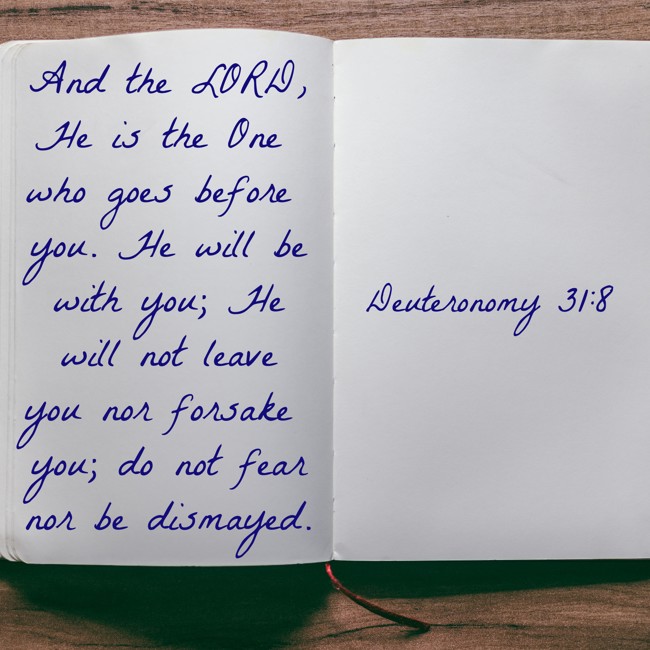 And the LORD,
He is the One
who goes before
you. He will be
with you; He
will not leave
you nor forsake
you; do not fear
nor be dismayed.
Deuteronomy 31:8